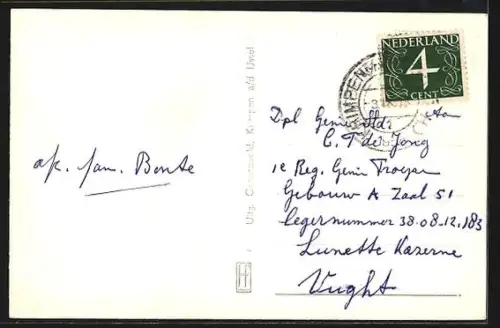 NEDERLAND
4
CENT
KRIMPEN
afz. fam. Bonte
Dpl Gemeld
C. T. de Jong
1e Reg. Genie Troepen
Gebouw A Zaal 51
legernummer 38.08-12.183
Lunette Kazerne
Vught
Uitg. Krimpen a/d IJssel
H